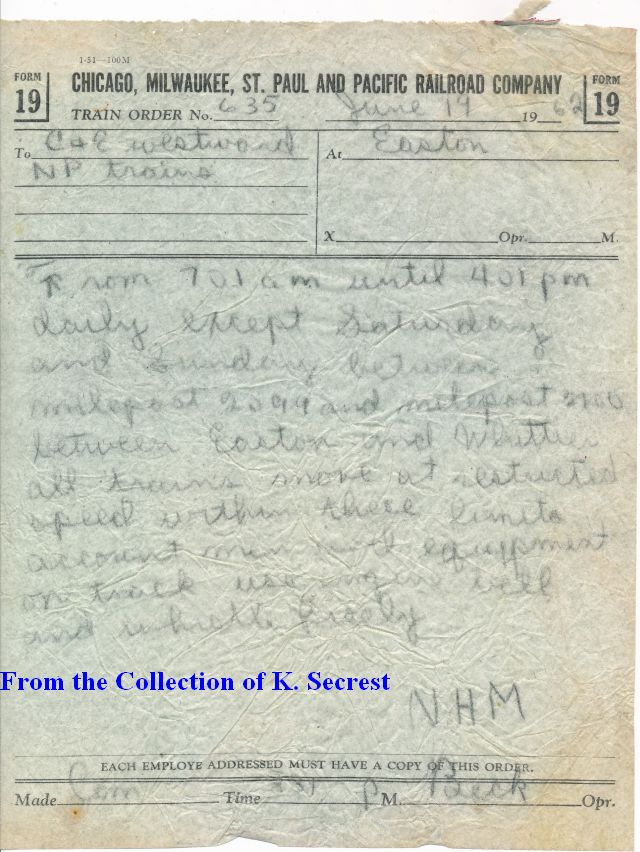 1-51—100M
FORM 19
CHICAGO, MILWAUKEE, ST. PAUL AND PACIFIC RAILROAD COMPANY
FORM 19
TRAIN ORDER No. 635 June 19 1962
To C&E westward
NP trains
At Easton
X Opr. M.
From 701 am until 401 pm
daily except Saturday
and Sunday between
milepost 2099 and milepost 2100
between Easton and Whittier
all trains move at restricted
speed within these limits
account men and equippment
on track use engine bell
and whistle freely
From the Collection of K. Secrest
NHM
EACH EMPLOYE ADDRESSED MUST HAVE A COPY OF THIS ORDER.
Made Com Time 331 p M. Beck Opr.